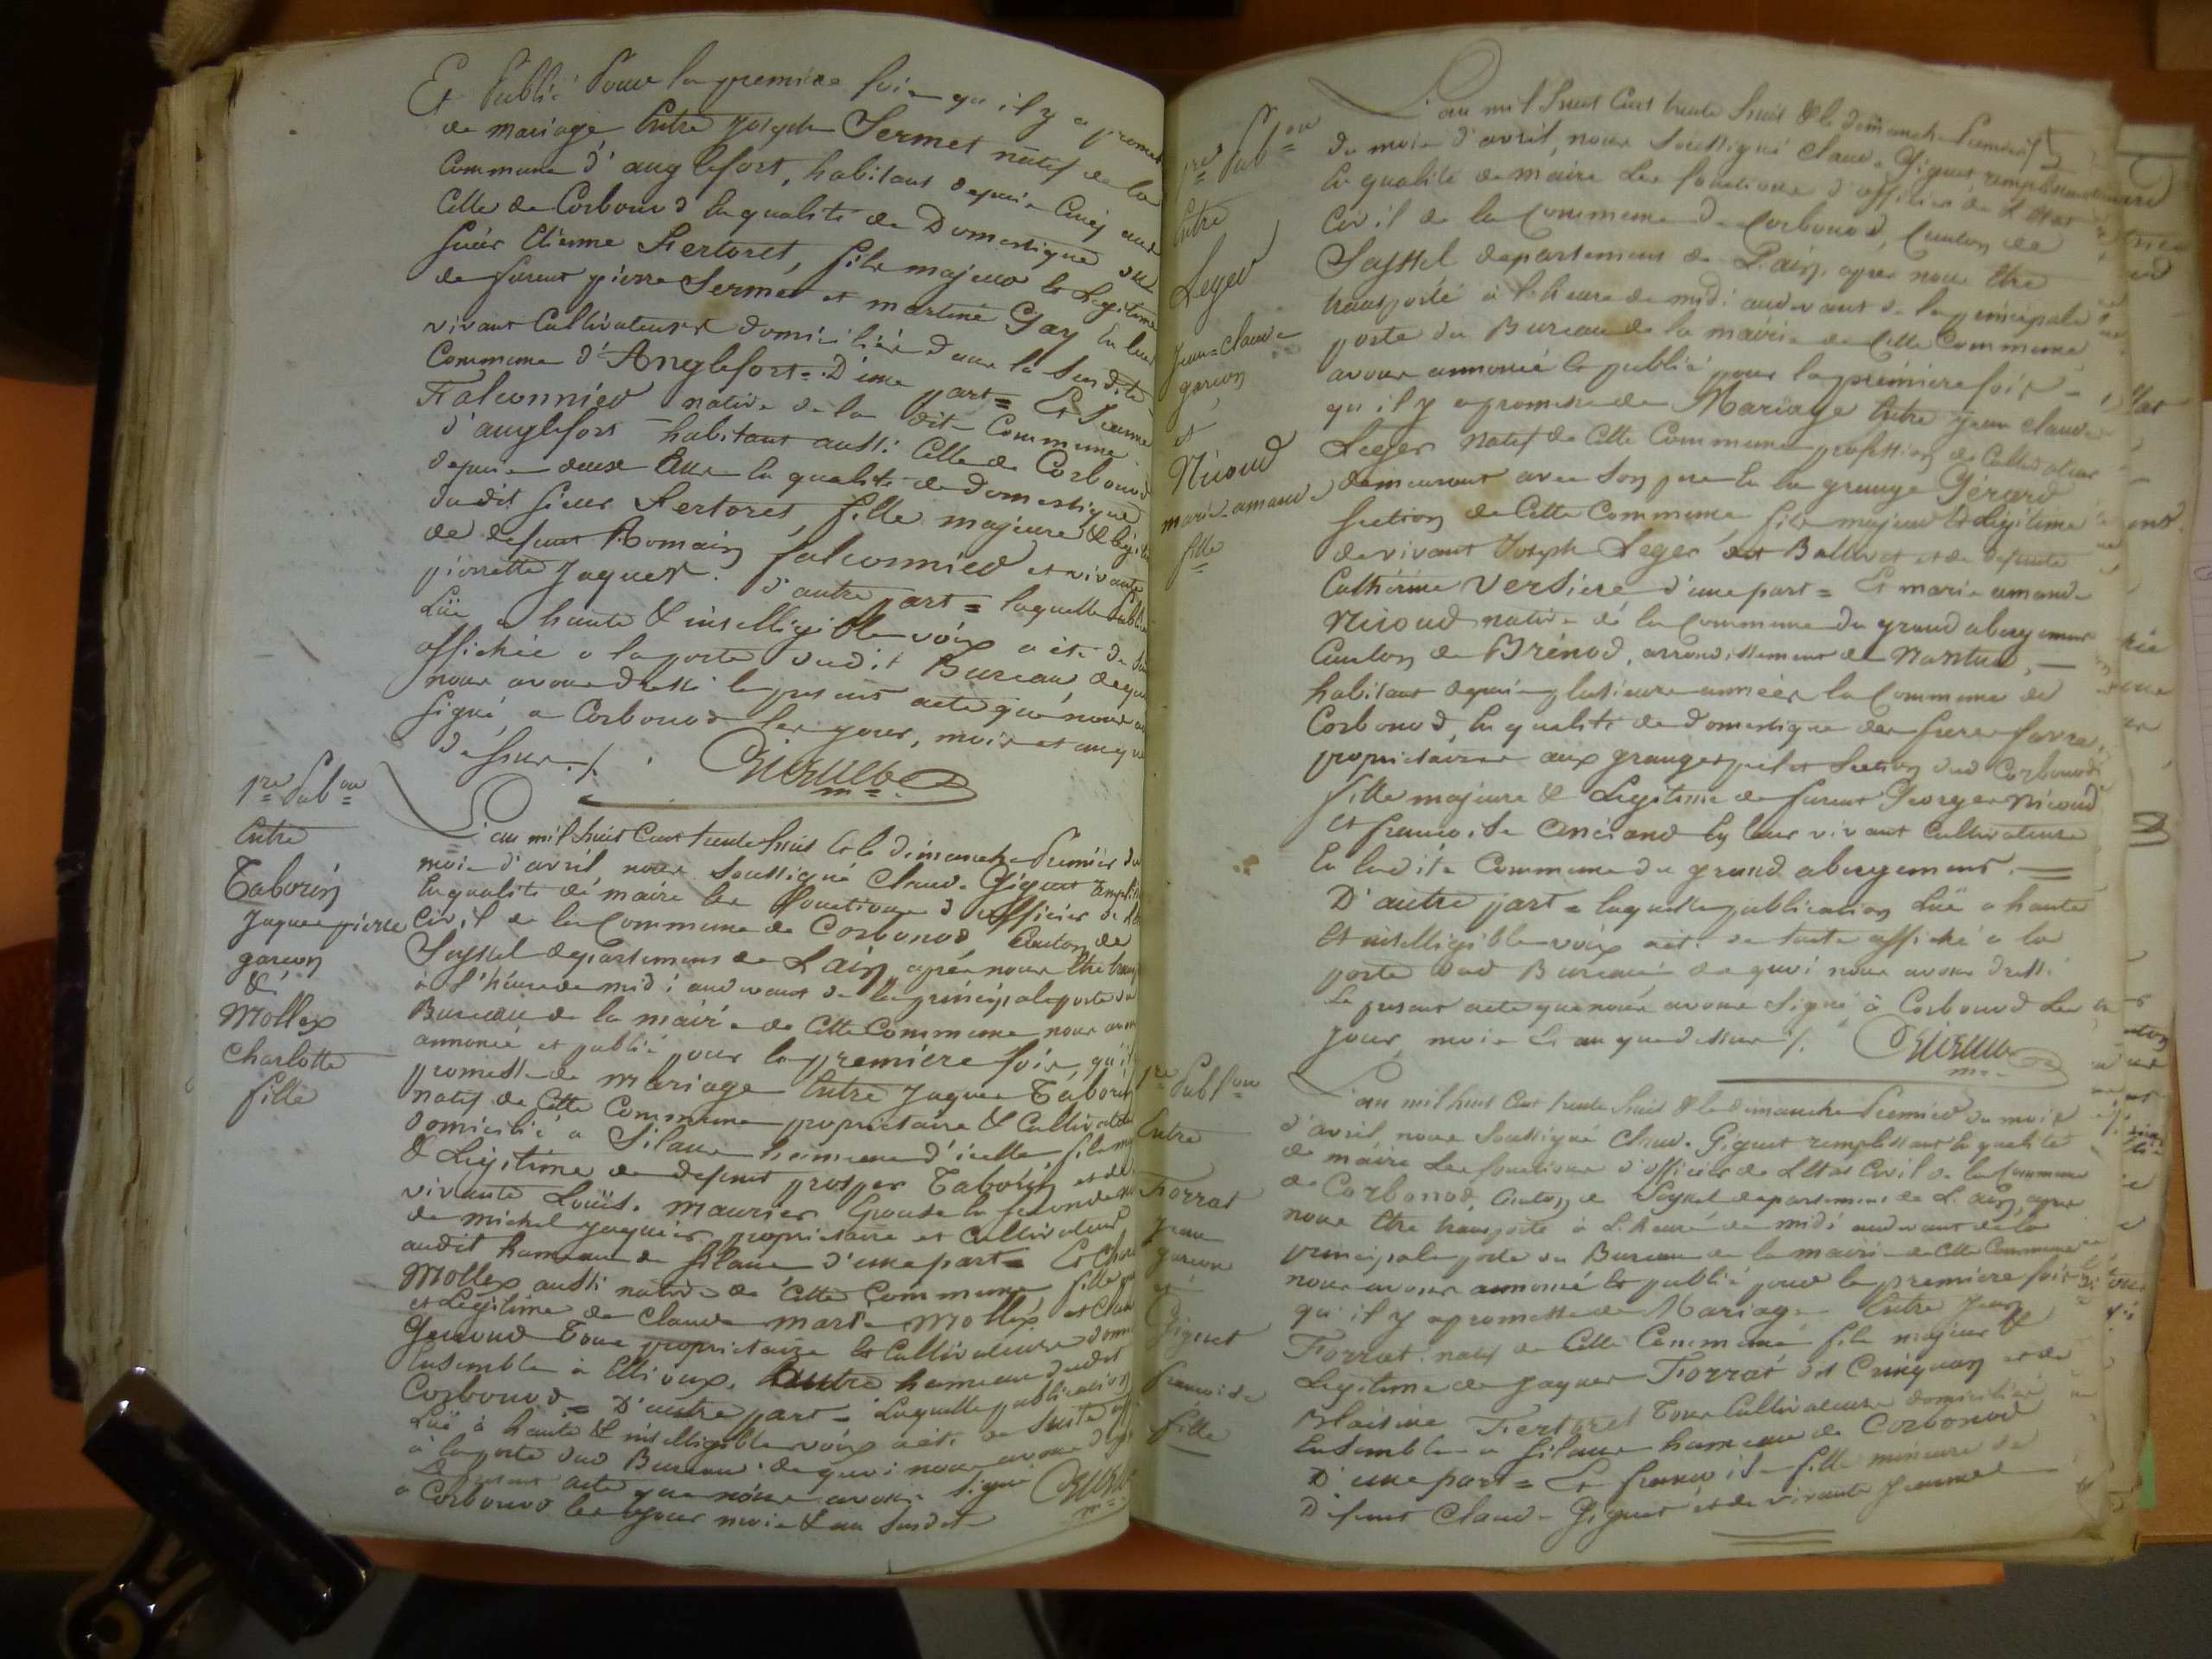 Et Publié Pour la premiere fois qu'il y a promes
de mariage, Entre Joseph Sermet natif de la
Commune d'anglefort, habitant depuis Cinq ans
Celle de Corbonod la qualité de Domestique du
sieur Etienne Fertoret, fils majeur et Legitime
de furent pierre Sermet et martine Gay En leur
vivant Cultivateurs domiciliés dans la Susdite
Commune d'Anglefort = D'une part = Et Jeanne
Falconnied native de la dite Commune
d'anglefort habitant aussi Celle de Corbonod
depuis deux ans la qualité de domestique
dudit sieur Fertoret, fille majeure & legiti
de defunt Romain falconnied et vivante
pierrette Jaquet. d'autre part = laquelle Public
Lüe a haute & intelligible voix a été de sui
affichée a la porte dudit Bureau, de quoi
nous avons dressé le present acte que nous a
signé, a Corbonod les jour, mois et an que
dessus ./.
1re Pubon
Entre
Taborin
Jaques pierre
garçon
&
Mollex
Charlotte
fille
L'an mil huit Cent trente huit et le dimanche Premier du
mois d'avril, nous Soussigné Claude Giguet rempliss
la qualité de maire les fonctions d'officier de l'Et
Civil de la Commune de Corbonod, Canton de
Seyssel departement de L'ain, aprés nous être trans
à l'heure de midi audevant de la principale porte du
Bureau de la mairie de Cette Commune nous avon
annoncé et publié pour la premiere fois, qu'il
promesse de mariage Entre Jaques Taborin
natif de Cette Commune propriétaire & Cultivate
domicilié a Silans hameau d'icelle, fils ma
& Légitime de defunt prosper Taborin et de
vivante Louise maurier Epouse en seconde no
de michel Jaquier propriétaire et Cultivateur
audit hameau de Silans d'une part = Et Char
Mollex aussi native de Cette Commune, fille
et Légitime de Claude marie Mollex et Clau
Tous propriétaire et Cultivateurs dom
Ensemble à Etrioux, autre hameau dudit
Corbonod = D'autre part = Laquelle publication
Lüe à haute & intelligible voix a été de suite aff
à la porte dud Bureau. de quoi nous avons d
Le present acte que nous avons signé
a Corbonod les jour mois & an susdit
1re Pubon
Entre
Leger
Jean-Claude
garçon
et
Nicoud
marie-amande
fille
L'an mil huit Cent trente huit & le dimanche Premier
du mois d'avril, nous Soussigné Claude Giguet remplissant
la qualité de maire Les fonctions d'officier de L'Etat
Civil de la Commune de Corbonod, Canton de
Seyssel departement de L'ain, apres nous Etre
transporté à l'heure de midi audevant de la principale
porte du Bureau de la mairie de Cette Commune
avons annoncé et publié pour la premiere fois -
qu'il y a promesse de Mariage Entre Jean Claude
Leger Natif de Cette Commune, profession de Cultivateur
demeurant avec Son pere En la grange Gérard
Section de Cette Commune, fils majeur et Legitime
de vivant Joseph Leger dit Ballivet et de defunte
Cathérine Versiere d'une part = Et marie amande
Nicoud native de la Commune du grand abergement
Canton de Brénod, arrondissement de Nantua, —
habitant depuis plusieurs années la Commune de
Corbonod, En qualité de domestique des freres favre,
propriétaires aux granges Section dud Corbonod
fille majeure & Legitime de furent George Nicoud
et françoise Anciand En leur vivant Cultivateurs
En la dite Commune du grand abergement. =
D'autre part = laquelle publication Lüe a haute
Et intelligible voix a été de suite affiché a la
porte dud Bureau, de quoi nous avons dressé.
Le present acte que nous avons Signé à Corbonod Les
jour, mois Et an que dessus ./.
1re Publon
Entre
Forrat
Jean
garçon
et
Giguet
françoise
fille
L'an mil huit Cent trente huit & le dimanche Premier du mois
d'avril, nous Soussigné Claude Giguet remplissant la qualité
de maire Les fonctions d'officier de L'Etat Civil de la Commune
de Corbonod, Canton de Seyssel departement de L'ain, apres
nous Etre transporté à L'heure de midi audevant de la
principale porte du Bureau de la mairie de Cette Commune
nous avons annoncé et publié pour la premiere fois
qu'il y a promesse de Mariage Entre Jean
Forrat natif de Cette Commune fils majeur &
Legitime de Jaques Forrat dit Cinquan et de
Blaisine Fertoret Tous Cultivateurs domiciliés
Ensemble a Silans hameau de Corbonod
D'une part = Et françoise fille mineure de
Defunt Claude Giguet et de vivante Jeanne